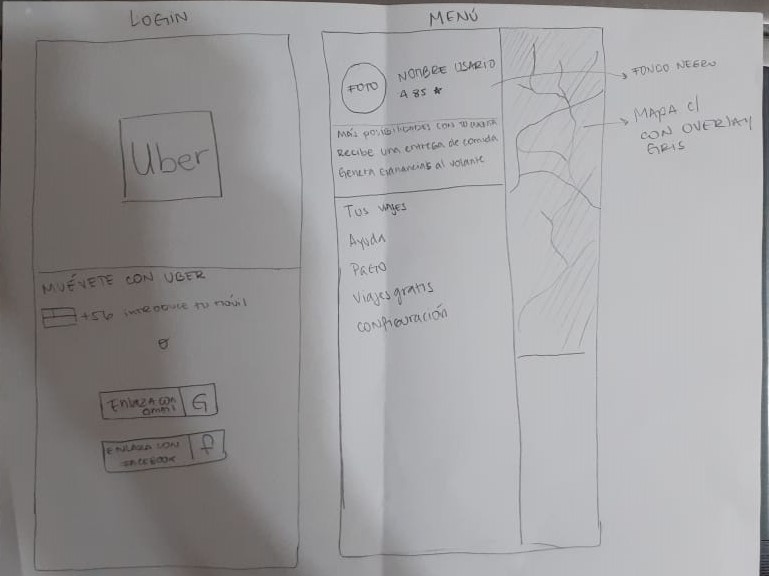 LOGIN
Uber
MUÉVETE CON UBER
+56 INTRODUCE TU MÓVIL
O
ENLAZA CON
GMAIL
G
ENLAZA CON
FACEBOOK
f
MENÚ
FOTO
NOMBRE USARIO
4.85 ★
MÁS POSIBILIDADES CON TU
Recibe una entrega de comida
Genera Ganancias al volante
Tus viajes
Ayuda
Pago
Viajes gratis
Configuración
FONDO NEGRO
MAPA C/
CON OVERLAY
GRIS